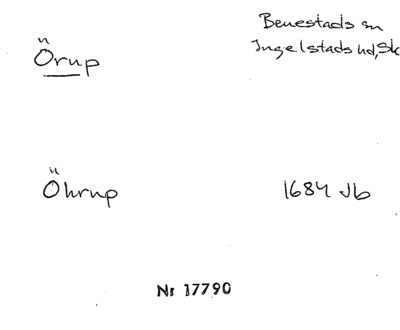 Benestads sn
Örup
Ingelstads hd, Sk
Öhrup 1684 Jb
Nr 17790